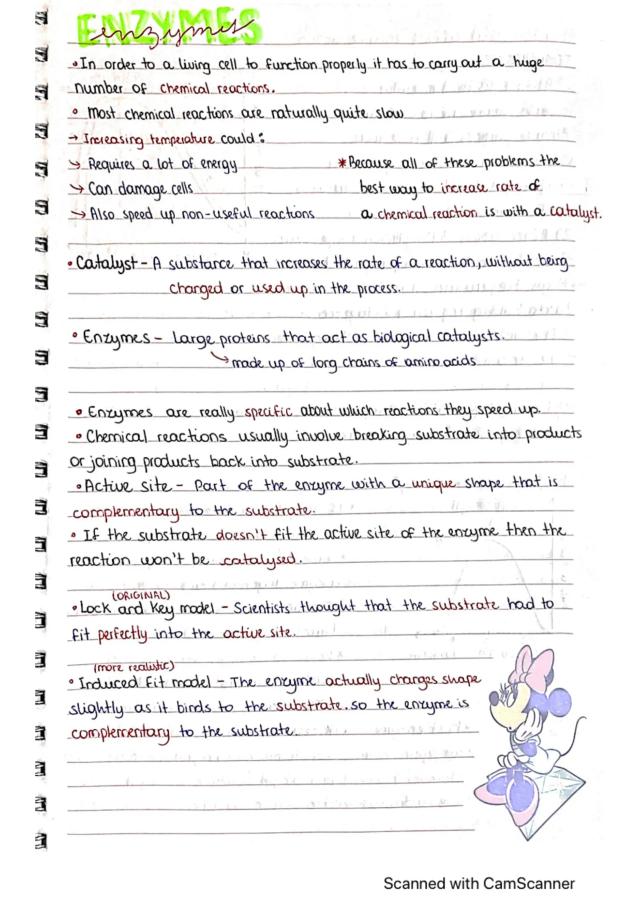 ENZYMES
enzymes
• In order to a living cell to function properly it has to carry out a huge
number of chemical reactions.
• Most chemical reactions are naturally quite slow
→ Increasing temperature could:
↳ Requires a lot of energy
↳ Can damage cells
↳ Also speed up non-useful reactions
*Because all of these problems the
best way to increase rate of
a chemical reaction is with a catalyst.
• Catalyst - A substance that increases the rate of a reaction, without being
changed or used up in the process.
• Enzymes - Large proteins that act as biological catalysts.
↳ made up of long chains of amino acids
• Enzymes are really specific about which reactions they speed up.
• Chemical reactions usually involve breaking substrate into products
or joining products back into substrate.
• Active site - Part of the enzyme with a unique shape that is
complementary to the substrate.
• If the substrate doesn't fit the active site of the enzyme then the
reaction won't be catalysed.
(ORIGINAL)
• Lock and Key model - Scientists thought that the substrate had to
fit perfectly into the active site.
(more realistic)
• Induced Fit model - The enzyme actually changes shape
slightly as it binds to the substrate. so the enzyme is
complementary to the substrate.
Scanned with CamScanner